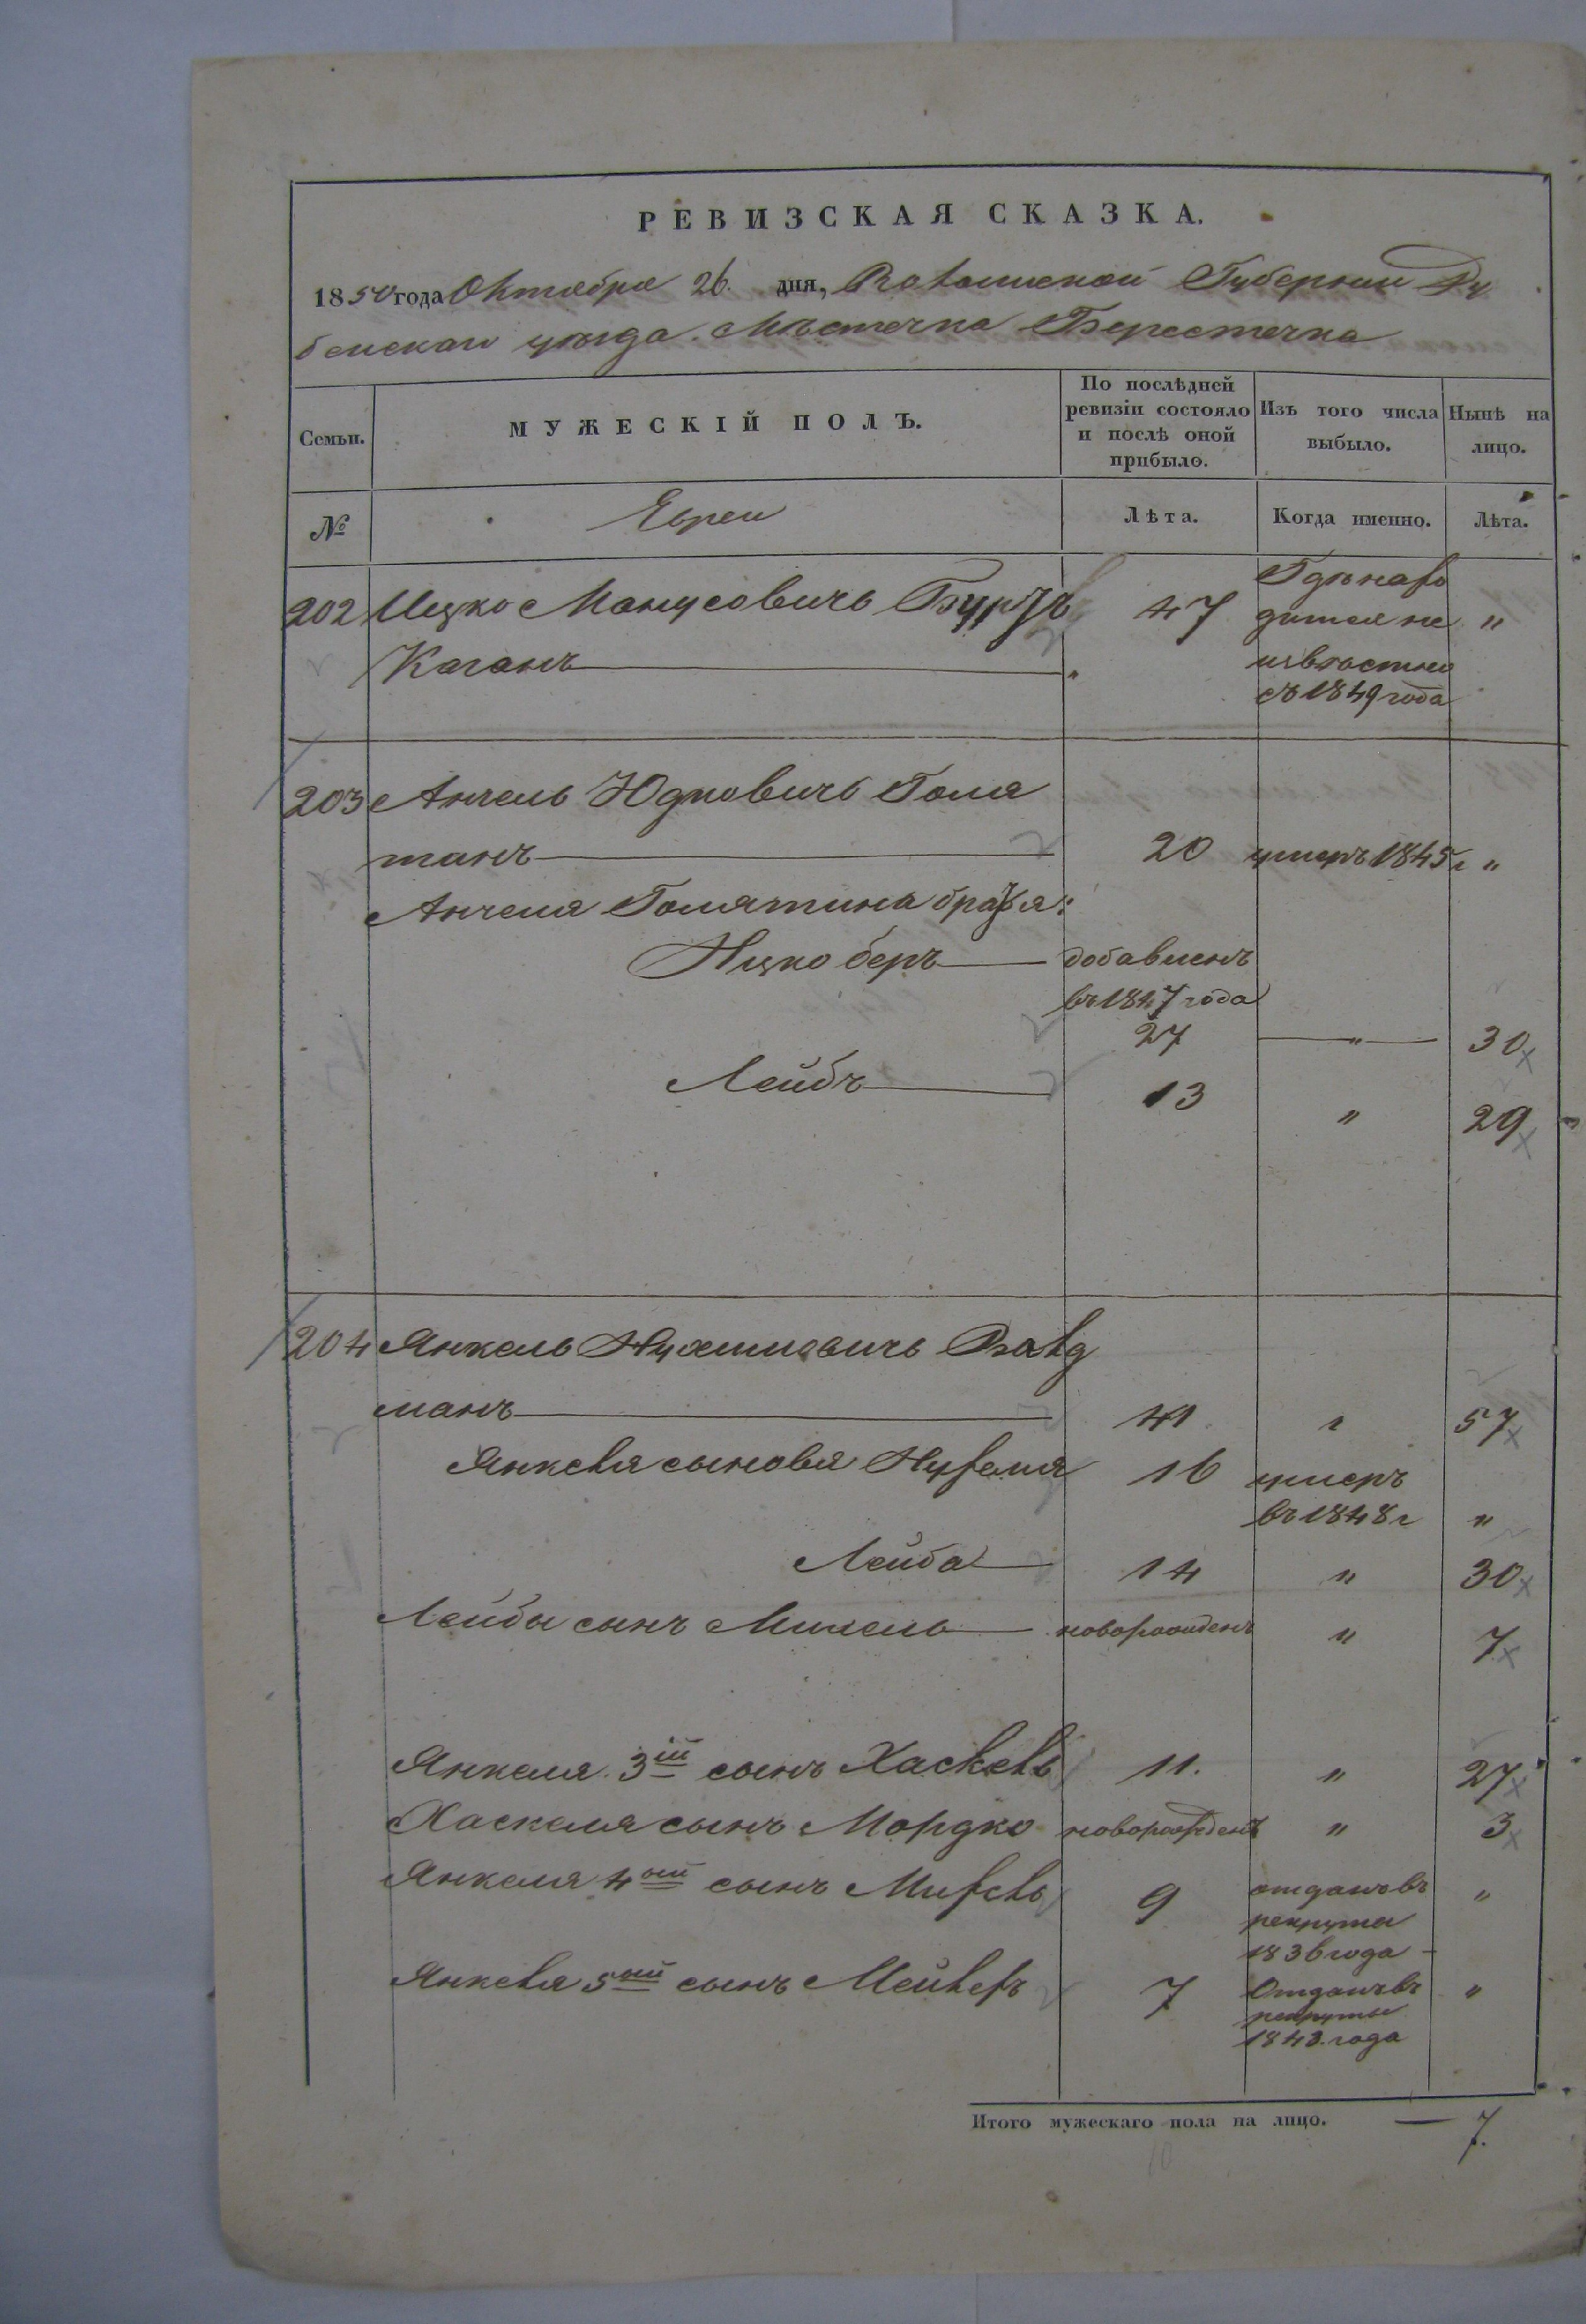 РЕВИЗСКАЯ СКАЗКА.
1850 года Октября 26. дня, Волынской Губернии Ду
бенскаго уѣзда. Мѣстечка Берестечка
Семьи.
МУЖЕСКІЙ ПОЛЪ.
По послѣдней ревизіи состояло и послѣ оной прибыло.
Изъ того числа выбыло.
Нынѣ на лицо.
№
Евреи
Лѣта.
Когда именно.
Лѣта.
202 Ицко Манусовичъ 47 Гдѣ нахо
дится не "
Каганъ извѣстно
съ 1849 года
203 Анчель Юдковичъ Голя
танъ 20 умеръ 1845 г "
Анчеля Голятина братья:
Ицко беръ добавленъ
въ 1847 года
27 " 30
Лейбъ 13 " 29
204 Янкель Нухимовичъ Валд
манъ 41 57
Янкеля сыновья Нухемя 16 умеръ
въ 1848 г "
Лейба 14 " 30
Лейбы сынъ новорожденъ " 7
Янкеля 3ій сынъ Хаскель 11. " 27
Хаскеля сынъ Мордко новорожденъ " 3
Янкеля 4ой сынъ Михель 9 отданъ въ "
рекруты
1836 года
Янкеля 5ый сынъ Мейлехъ 7 Отданъ въ "
рекруты
1843. года
Итого мужескаго пола на лицо. — 7.